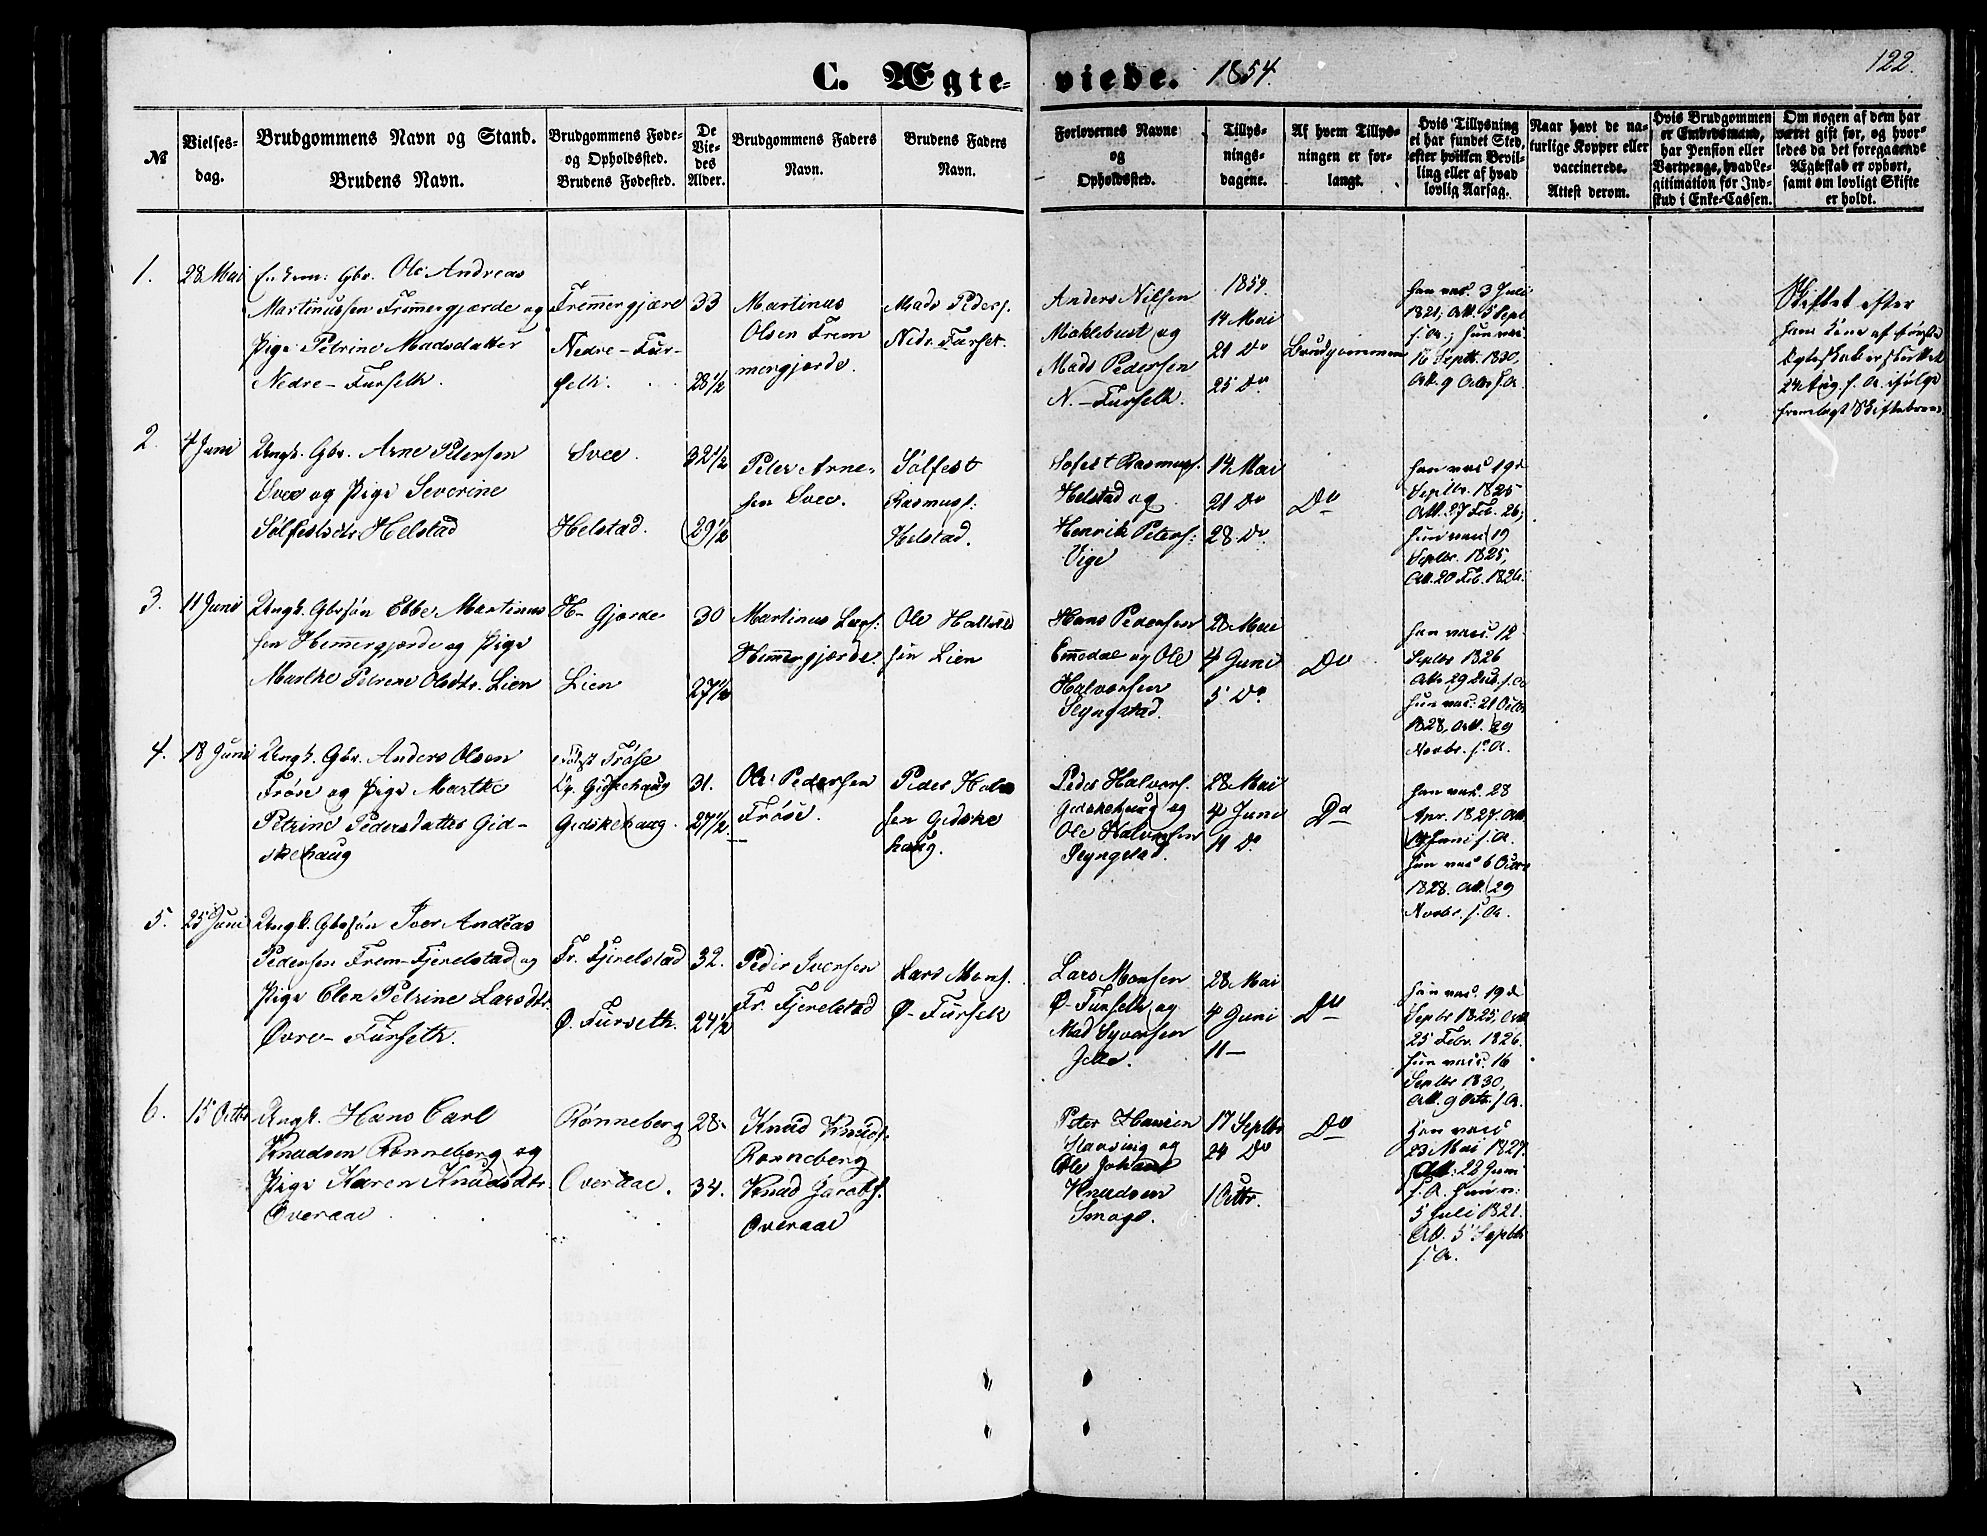 C. Ægte-
viede. 1854.
122.
№
Vielses-
dag.
Brudgommens Navn og Stand.
Brudens Navn.
Brudgommens Føde-
og Opholdssted.
Brudens Fødested.
De
Vie-
des
Alder.
Brudgommens Faders
Navn.
Brudens Faders
Navn.
Forlovernes Navne
og
Opholdssted.
Tillys-
nings-
dagene.
Af hvem Tillys-
ningen er for-
langt.
Hvis Tillysning
ei har fundet Sted,
efter hvilken Bevil-
ling eller af hvad
lovlig Aarsag.
Naar havt de na-
turlige Kopper eller
vaccinerede.
Attest derom.
Hvis Brudgommen
er Embedsmand,
har Pension eller
Vartpenge, hvad Le-
gitimation for Ind-
skud i Enke-Cassen.
Om nogen af dem har
været gift før, og hvor-
ledes da det foregaaende
Ægteskab er ophørt,
samt om lovligt Skifte
er holdt.
1.
28 Mai
Enkem: Gbr. Ole Andreas
Martinussen Fremmergjærde og
Pige Petrine Madsdatter
Nedre-Furseth.
Fremmergjære
Nedre-Fur-
seth.
33
28 1/2
Martinus
Olsen Frem
mergjerde.
Mads Peders.
Nedr. Furset.
Anders Nilsen
Mæklebust og
Mads Pedersen
N.-Furseth.
1854.
14 Mai
21 Do
25 Do
Brudgommen
han vac. 3 Juli
1821, Att. 5 Sept
s. A.; hun vac
16 Septb. 1830,
Att. 9 Octb s. A.
Skiftet efter
hans Kone af første
Ægteskab er sluttet
24 Aug. s. A. ifølge
fremlagt Skiftebrev.
2.
7 Juni
Ungk. Gbr. Arne Petersen
Svee og Pige Severine
Solfestsdr Helstad
Svee.
Helstad.
32 1/2
29 1/2
Peter Arne-
sen Svee.
Solfest
Rasmuss:
Helstad.
Sofest Rasmuss.
Helstad og
Henrik Peters:
Vige
14 Mai
21 Do
28 Do
Do
han vac 19d
Septbr. 1825
Att. 27 Feb. 26,
hun vac 19
Septbr. 1825,
Att. 20 Feb. 1826.
3.
11 Juni
Ungk. Gbrsøn Ebbe Martinus
sen Hemmergjerde og Pige
Marthe Petrine Olsdtr. Lien
H-Gjærde
Lien
30
27 1/2
Martinus Lars:
Hemmergjærde.
Ole Halvor
sen Lien
Hans Pedersen
Emdal og Ole
Halvorsen
Slyngstad.
28 Mai
4 Juni
5 Do
Do
han vac. 12
Septbr 1826
Att. 29 Dec. s. A
hun vac: 21 Octbr
1828, Att. 29
Novbr. s. A.
4.
18 Juni
Ungk. Gbr. Anders Olsen
Frøse og Pige Marthe
Petrine Pedersdatter Gid-
skehaug
født Frøse
Op. Gidskehaug
Gidskehaug.
31.
27 1/2
Ole Pedersen
Frøse.
Peder Halvor
sen Gidske
haug.
Peder Halvors.
Gidskehaug og
Ole Halvorsen
Slyngstad.
28 Mai
4 Juni
11 Do
Do
han vac. 28
Apr. 1827. Att
Juni s. A.
hun vac 6 Octbr
1828. Att. 29
Novbr. s. A.
5.
25 Juni
Ungk. Gbrsøn Iver Andreas
Pedersen Frem-Fjerelstad og
Pige Elen Petrine Larsdtr.
Øvre-Furseth.
Fr. Fjerelstad
Ø. Furseth.
32.
24 1/2
Peder Iversen
Fr. Fjerelstad
Lars Mons.
Ø-Furseth
Lars Monsen
Ø-Furseth og
Mad Syversen
Jelle.
28 Mai
4 Juni
11 —
Do
han vac. 19d
Septbr 1825, Att
25 Febr. 1826.
hun vac. 16
Septbr 1830,
Att. 9 Octb. s. A.
6.
15 Octbr
Ungk. Hans Carl
Knudsen Rønneberg og
Pige Karen Knudsdtr.
Overaae
Rønneberg
Overaae.
28.
34.
Knud Knuds:
Rønneberg
Knud Jacobs.
Overaae
Peter Hansen
Slaaving og
Ole Johan
Knudsen
Smage.
17 Septbr
24 Do
1 Octbr.
Do
han vac
23 Mai 1827.
Att: 22 Juni
s. A. hun v:
5 Juli 1821.
Att. 5 Septbr
s. A.